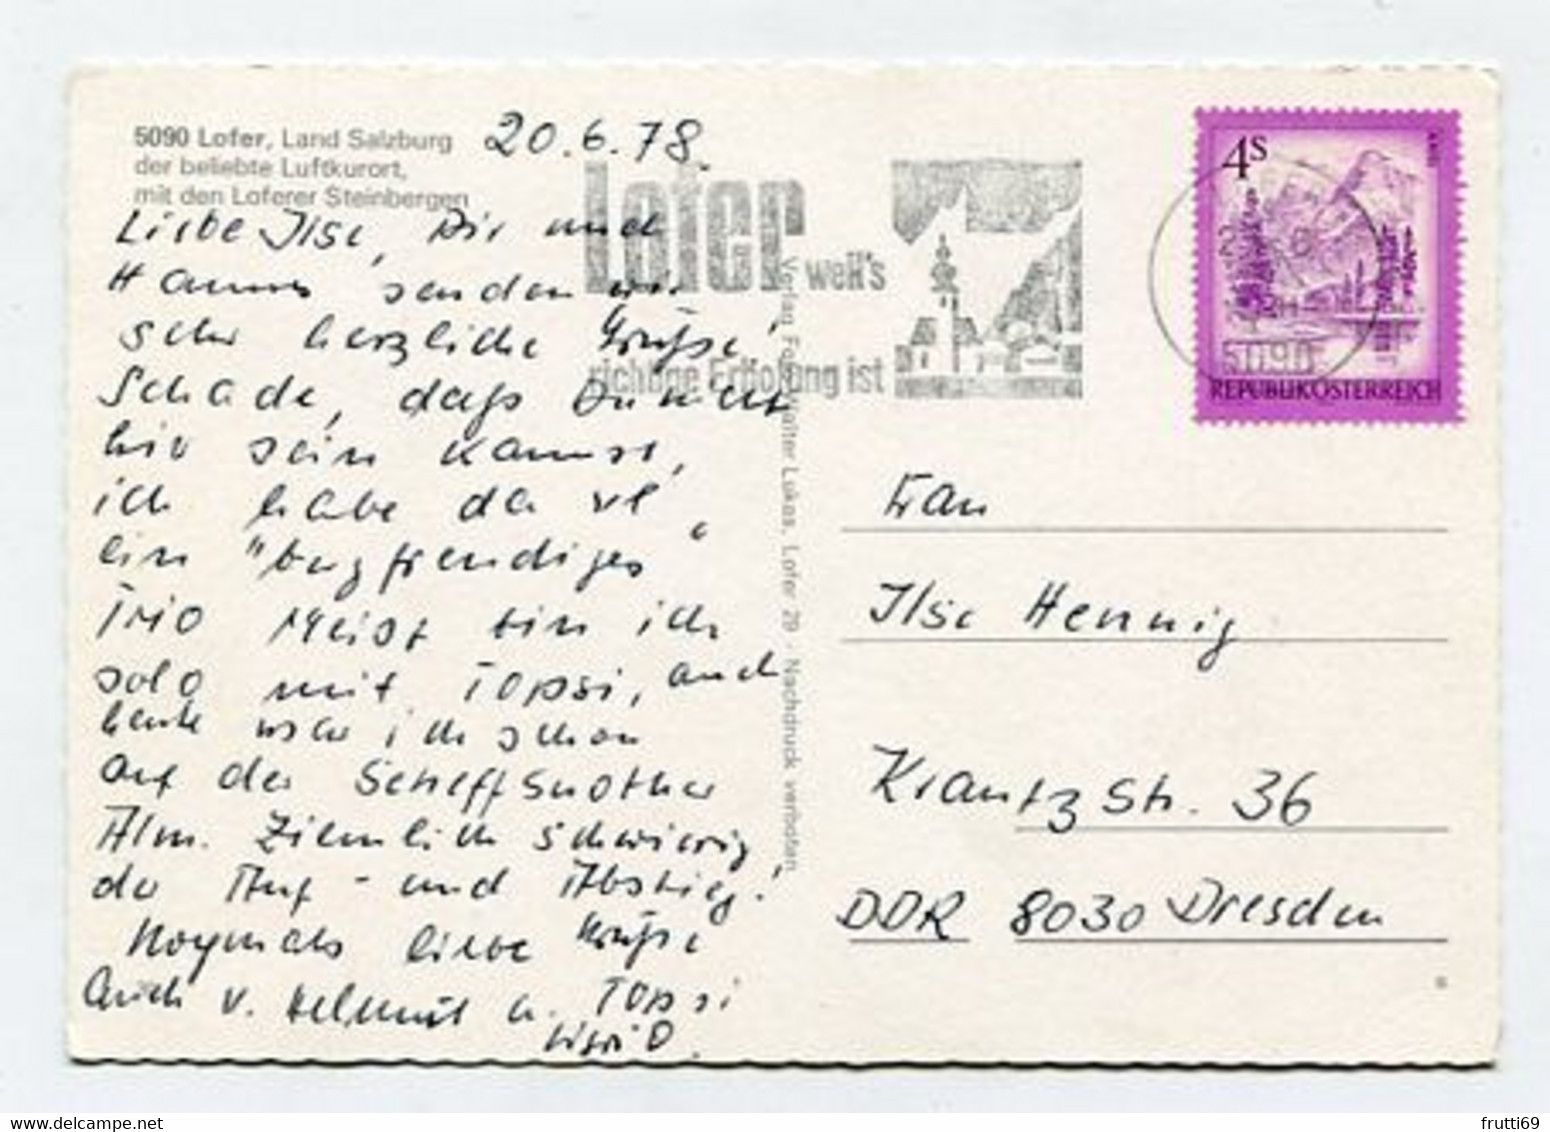 5090 Lofer, Land Salzburg
der beliebte Luftkurort,
mit den Loferer Steinbergen
20.6.78.
Liebe Ilse, Dir und
Hannes senden wir
sehr herzliche Grüße!
Schade, daß Du nicht
hier sein kannst,
ich habe da
ein "bergfreudiges"
Trio Meist bin ich
solo mit Topsi, auch
heute war ich schon
auf der Scheffsnother
Alm. Ziemlich schwierig
der Auf- und Abstieg!
Nochmals liebe Grüße
auch v. Helmut u. Topsi
Lofer weiß's
richtige Erholung ist
Verlag Foto Walter Lukas, Lofer 29 - Nachdruck verboten
4S
5090
REPUBLIK ÖSTERREICH
Frau
Ilse Hennig
Krantz Str. 36
DDR 8030 Dresden
frutti69